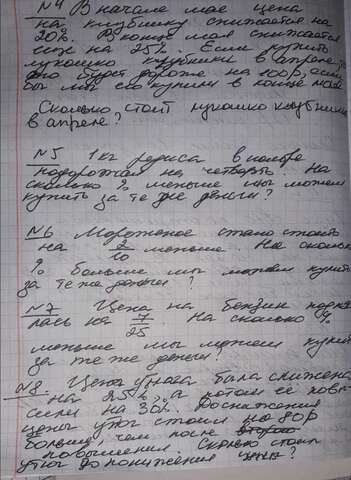 №4 В начале мая цена
на клубнику снижается на
20%. В конце мая снижается
еще на 25%. Если купить
лукошко клубники в апреле, то
это будет дороже на 100р, если
бы мы его купили в конце мая.
Сколько стоит лукошко клубники
в апреле?
№5 1 кг редиса в ноябре
подорожал на четверть. На
сколько % меньше мы можем
купить за те же деньги?
№6 Мороженое стало стоить
на 2/10 меньше. На сколько
% больше мы можем купить
за те же деньги?
№7 Цена на бензин подня
лась на 7/25. На сколько %
меньше мы можем купить
за те же деньги?
№8. Цена утюга была снижена
на 25%, а потом её повы
сили на 30%. До снижения
цены утюг стоил на 80р
больше, чем после
повышения. Сколько стоил
утюг до понижения цены?